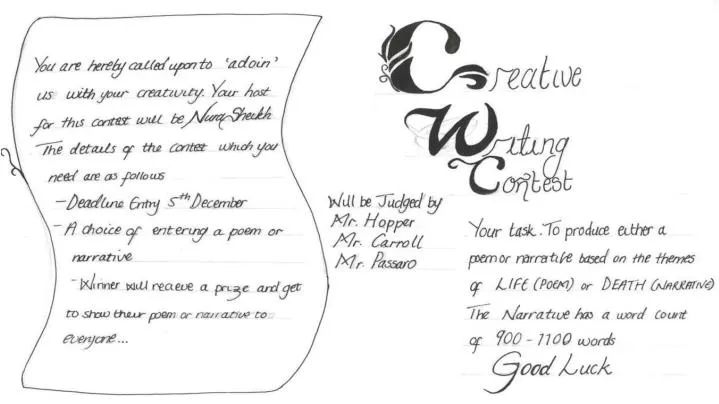 You are hereby called upon to 'adoin'
us with your creativity. Your host
for this contest will be Nuraj Sheikh
The details of the contest which you
need are as follows
-Deadline Entry 5th December
-A choice of entering a poem or
narrative
-Winner will recieve a prize and get
to show their poem or narrative to
everyone...
Will be Judged by
Mr. Hopper
Mr. Carroll
Mr. Passaro
Creative
Writing
Contest
Your task. To produce either a
poem or narrative based on the themes
of LIFE (POEM) or DEATH (NARRATIVE)
The Narrative has a word count
of 900 - 1100 words
Good Luck